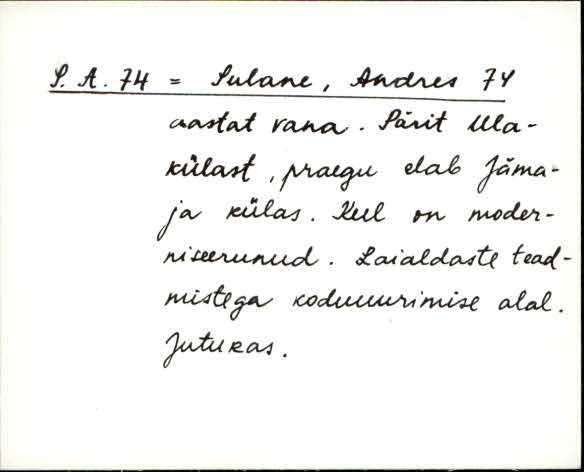 S. A. 74 = Sulane, Andres 74
aastat vana. Pärit Ula-
külast, praegu elab Jäma-
ja külas. Keel on moder-
niseerunud. Laialdaste tead-
mistega koduuurimise alal.
Jutukas.